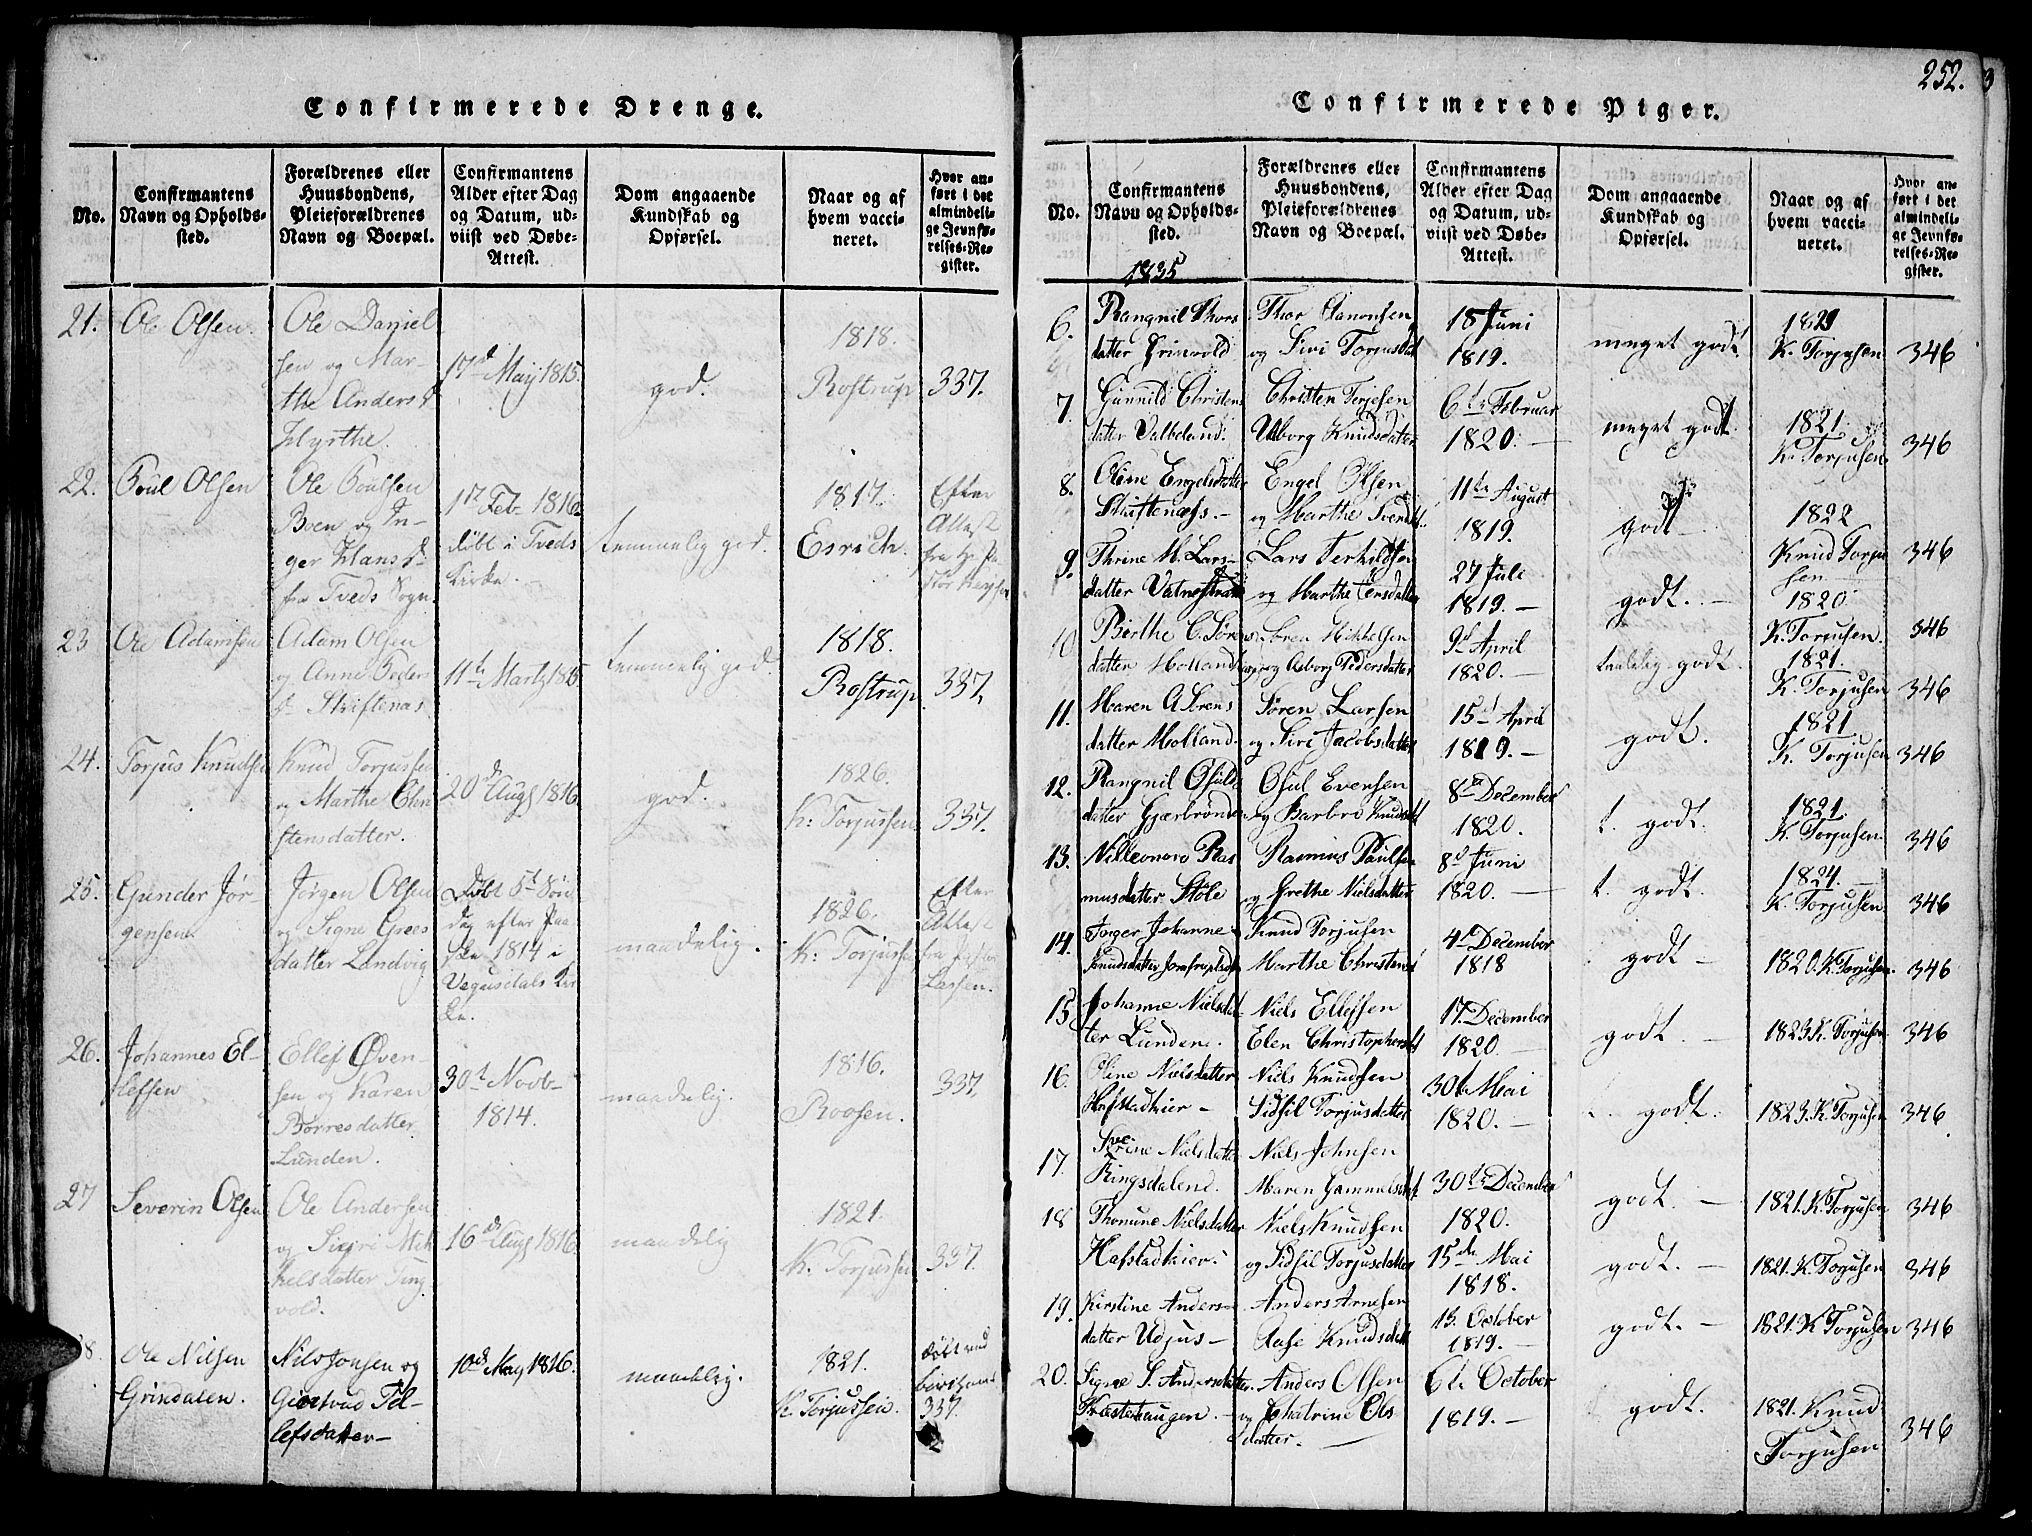 Confirmerede Drenge.
No.
Confirmantens
Navn og Opholds-
sted.
Forældrenes eller
Huusbondens,
Pleieforældrenes
Navn og Boepæl.
Confirmantens
Alder efter Dag
og Datum, ud-
viist ved Døbe-
Attest.
Dom angaaende
Kundskab og
Opførsel.
Naar og af
hvem vacci-
neret.
Hvor an-
ført i det
almindeli-
ge Jevnfø-
relses-Re-
gister.
21. Ole Olsen.
Ole Daniel
sen og Mar-
the Anders d
17d May 1815.
god.
1818.
Rostrup
337.
22. Poul Olsen
Ole Poulsen
Boen og In-
ger Hans d
fra Tveds Sogn.
1st Feb. 1816.
døbt i Tveds
Kirke.
temmelig god.
1817.
Esrich.
Efter
Attest
fra Hr Pa
stor
23 Ole Adamsen
Adam Olsen
og Anne Peders
d Skiftenæs.
11te Martz 1815
temmelig god
1818.
Rostrup
337.
24. Torjus Knudsen
Knud Torjussen
og Marthe Chri
stensdatter.
20de Augs 1816.
god.
1826.
K: Torjussen.
337.
25. Gunder Jør-
gensen
Jørgen Olsen
og Signe Grees
datter Landvig
Døbt 5t Søn
dag efter Paa
ske 1814 i
Vegusdals Kir
ke.
maadelig.
1826.
K: Torjussen
Efter
Attest
fra Pastor
Lassen.
26. Johannes El-
lefsen
Ellef Øven-
sen og Karen
Børresdatter
Lunden.
30t Novb-
1814.
maadelig.
1816.
Roosen.
337.
27 Severin Olsen
Ole Andersen
og Sigri Mik
kelsdatter Ting
vold.
16de Augs 1816.
maadelig
1821.
K. Torjussen
337.
28. Ole Nilsen
Grindalen.
Nils Jonsen og
Giertrud Tel-
lefsdatter-
10de May 1816.
maadelig.
1821.
K. Torjussen.
døbt ved
337.
252.
Confirmerede Piger.
No.
Confirmantens
Navn og Opholds-
sted.
Forældrenes eller
Huusbondens,
Pleieforældrenes
Navn og Boepæl.
Confirmantens
Alder efter Dag
og Datum, ud-
viist ved Døbe-
Attest.
Dom angaaende
Kundskab og
Opførsel.
Naar og af
hvem vacci-
neret.
Hvor an-
ført i det
almindeli-
ge Jevnfø-
relses-Re-
gister.
1835
6. Rangnil Thors
datter Grinvold
Thor Aanonsen
og Sivi Torjusdat
18 Juni
1819.
meget godt
1821
K. Torjusen
346
7. Gunnild Christens
datter Valbeland.
Christen Terjesen
Valborg Knudsdatter
6te Februar
1820. —
meget godt
1821.
K. Torjusen.
346
8. Oline Engelsdatter
Skiftenæss. —
Engel Olsen
og Marthe Svendsd.
11te August
1819.
godt
1822
Knud Torju
sen
346
9. Thrine M. Lars-
datter Vatnestrand
Lars Terkildsen
og Marthe Jensdatter
27 Juli
1819. —
godt. —
1820.
K. Torjusen.
346
10. Birthe C. Sørens
datter Molland
Søren Mikkelsen
og Asborg Pedersdatter
9d April
1820. —
taalelig godt.
1821.
K. Torjusen
346
11. Maren A Sørens
datter Molland.
Søren Larsen
og Sivi Jacobsdatter
15d April
1819. —
godt.
1821
K. Torjusen
346
12. Rangnil Osulds
datter Gjærbrønden
Osul Evensen
og Barbro Knudsdt
8de December
1820.
t. godt.
1821.
K. Torjusen.
346
13. Nilleonora Ras
musdatter Støle
Rasmus Paulsen
og Grethe Nielsdatter
8d Juni
1820. —
t. godt.
1824. —
K. Torjusen.
346
14. Inger Johanne
Knudsdatter
Knud Torjusen
Marthe Christensd
4d December
1818
godt —
1820. K. Torjusen.
346
15. Johanne Nielsdat-
ter Lunden.
Niels Ellefsen
Elen Christophersdt
17. December
1820. —
godt. —
1823. K. Torjusen
346
16. Oline Nielsdatter
Hafstadkier —
Niels Knudsen
Sidsil Torjusdatter
30te Mai
1820. —
godt.
1823. K. Torjusen
346
17. Serine Nielsdatter
Ringsdalend.
Niels Johnsen
Maren Gammelsdat
30te December
1820.
godt. —
1821. K. Torjusen
346
18 Thomine Nielsdatter
Hafstadkier.
Niels Knudsen
og Sidsil Torjusdatter
15de Mai
1818.
godt. —
1821. K. Torjusen
346
19. Kirstine Anders-
datter Udjus —
Anders Arnesen
Aase Knudsdatt
13. October
1819. —
godt. —
1821. K Torjusen
346
20. Signe S. Andersdatter.
Præstehaugen. —
Anders Olsen
og Chatrine Ols
datter. —
6te October
1819. —
godt.
1821. Knud
Torjusen
346